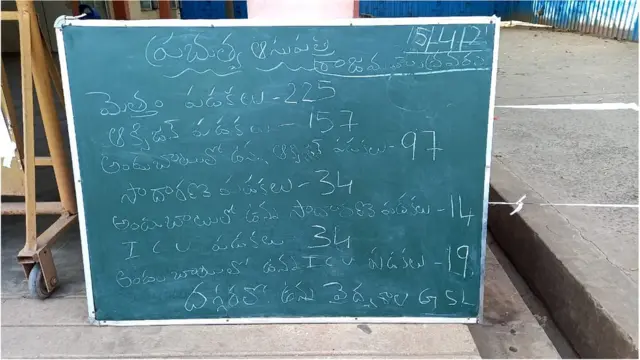 15/4/21
ప్రభుత్వ ఆసుపత్రి
రాజమహేంద్రవరం
మొత్తం పడకలు - 225
ఆక్సిజన్ పడకలు - 157
అందుబాటులో ఉన్న ఆక్సిజన్ పడకలు - 97
సాధారణ పడకలు - 34
అందుబాటులో ఉన్న సాధారణ పడకలు - 14
I C U పడకలు - 34
అందుబాటులో ఉన్న I C U పడకలు - 19
దగ్గరలో ఉన్న వైద్యశాల G S L